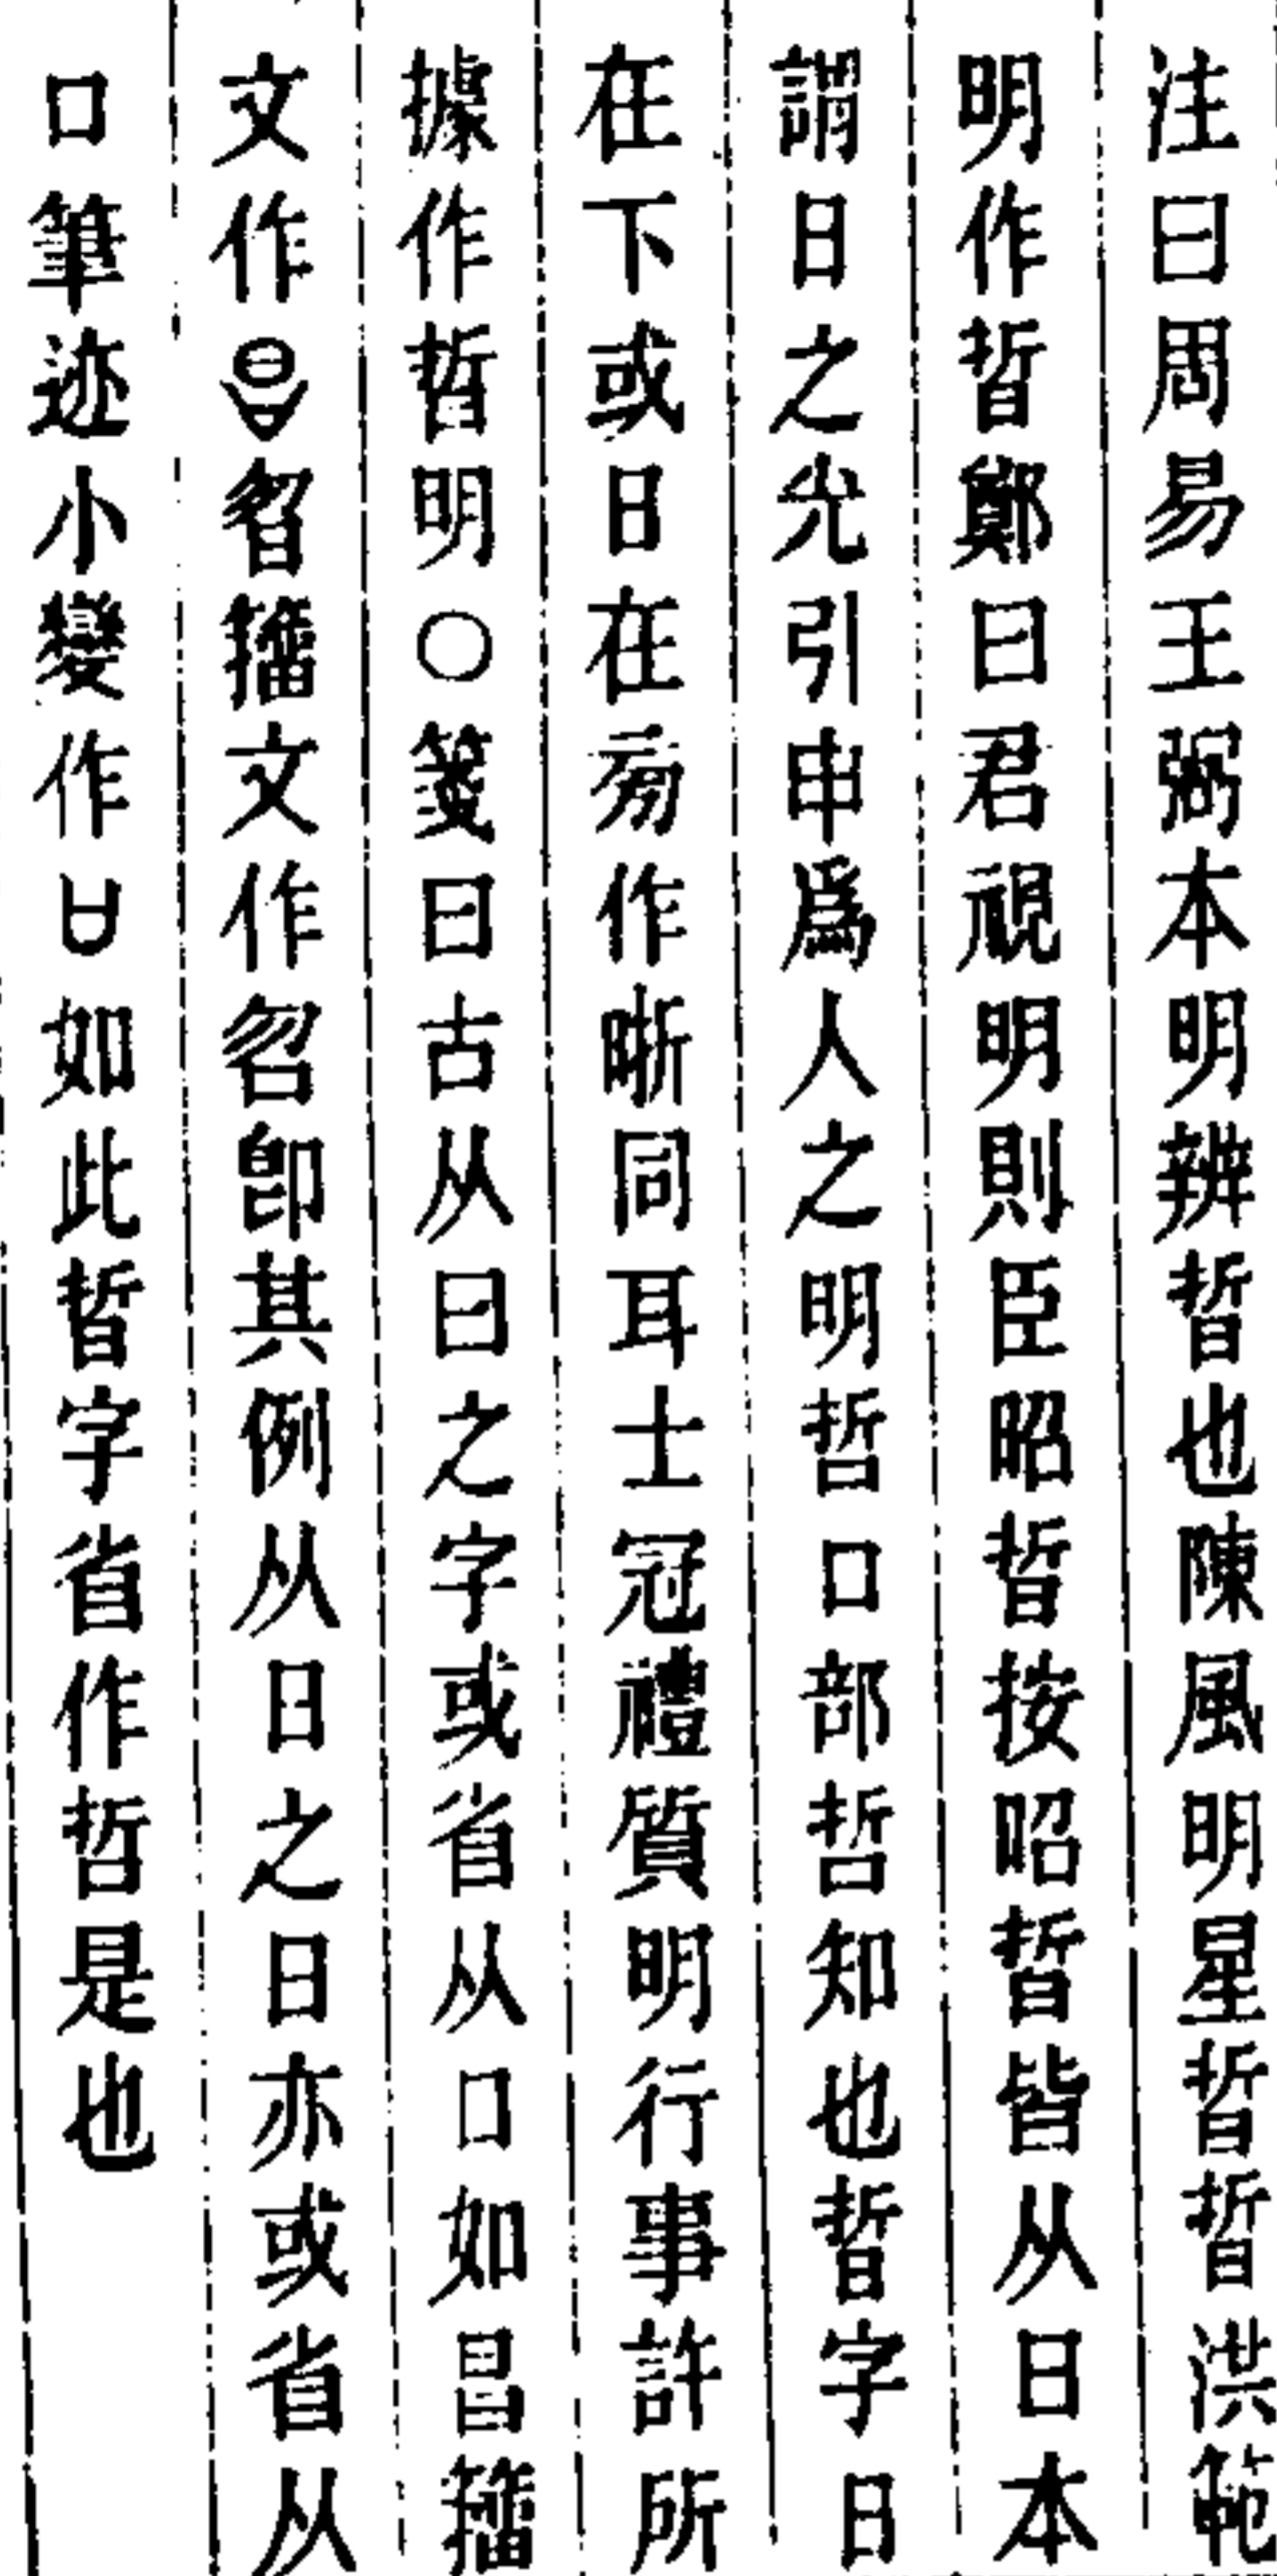 注曰周易王弼本明辨晢也陳風明星晢晢洪範
明作晢鄭曰君視明則臣昭晢按昭晢皆从日本
謂日之光引申爲人之明哲口部哲知也晢字日
在下或日在㫄作晣同耳士冠禮質明行事許所
據作晢明○箋曰古从曰之字或省从口如昌籒
文作曶籒文作卽其例从日之日亦或省从
口筆迹小變作如此晢字省作哲是也